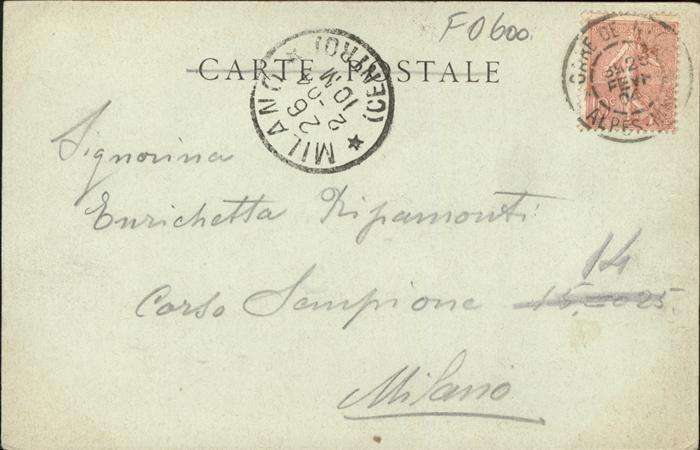 FO600
CARTE POSTALE
MILANO (CENTRO)
26
2-05
10 M
GARE DE
ALPES
Signorina
Enrichetta Ripamonti
14
Corso Sempione
Milano